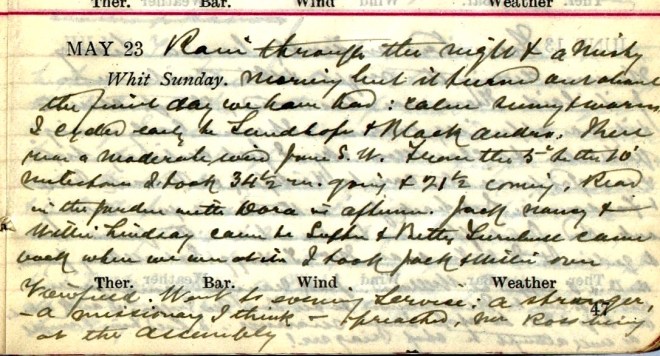 Ther. Bar. Wind Weather
MAY 23 Rain through the night & a misty
Whit Sunday. morning but it turned out about
the finest day we have had: calm sunny & warm
I cycled early to Sandhope & Black andro. There
was a moderate wind from S.W. From the 5th to the 10th
milestone I took 34½ m. going & 21½ coming. Read
in the garden with Dora in afternn. Jack Nancy &
Willie Lindsay came to Supper & Betty Turnbull came
back when we were at it. I took Jack & Willie over
Ther. Bar. Wind Weather
Viewfield. Went to evening service: a stranger,
- a missionary I think - preached, Mr
at the Assembly
47